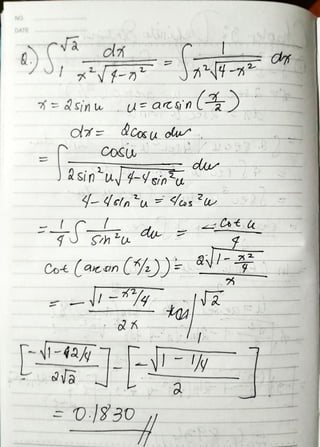 NO
DATE
Q.) ∫₁^√2 dx / x²√4-x² = ∫ 1 / x²√4-x² dx
x = 2 sin u   u = arcsin (x/2)
dx = 2 cos u du
= ∫ cos u / 2 sin² u √4-4 sin² u du
4-4 sin² u = 4 cos² u
= 1/4 ∫ 1 / sin² u du = - cot u / 4
cot (arcsin (x/2)) = 2√1 - x²/4 / x
= - √1 - x²/4 / 2x |₁^√2
[ -√1-√2/4 / 2√2 ] - [ - √1 - 1/4 / 2 ]
= 0.1830 //